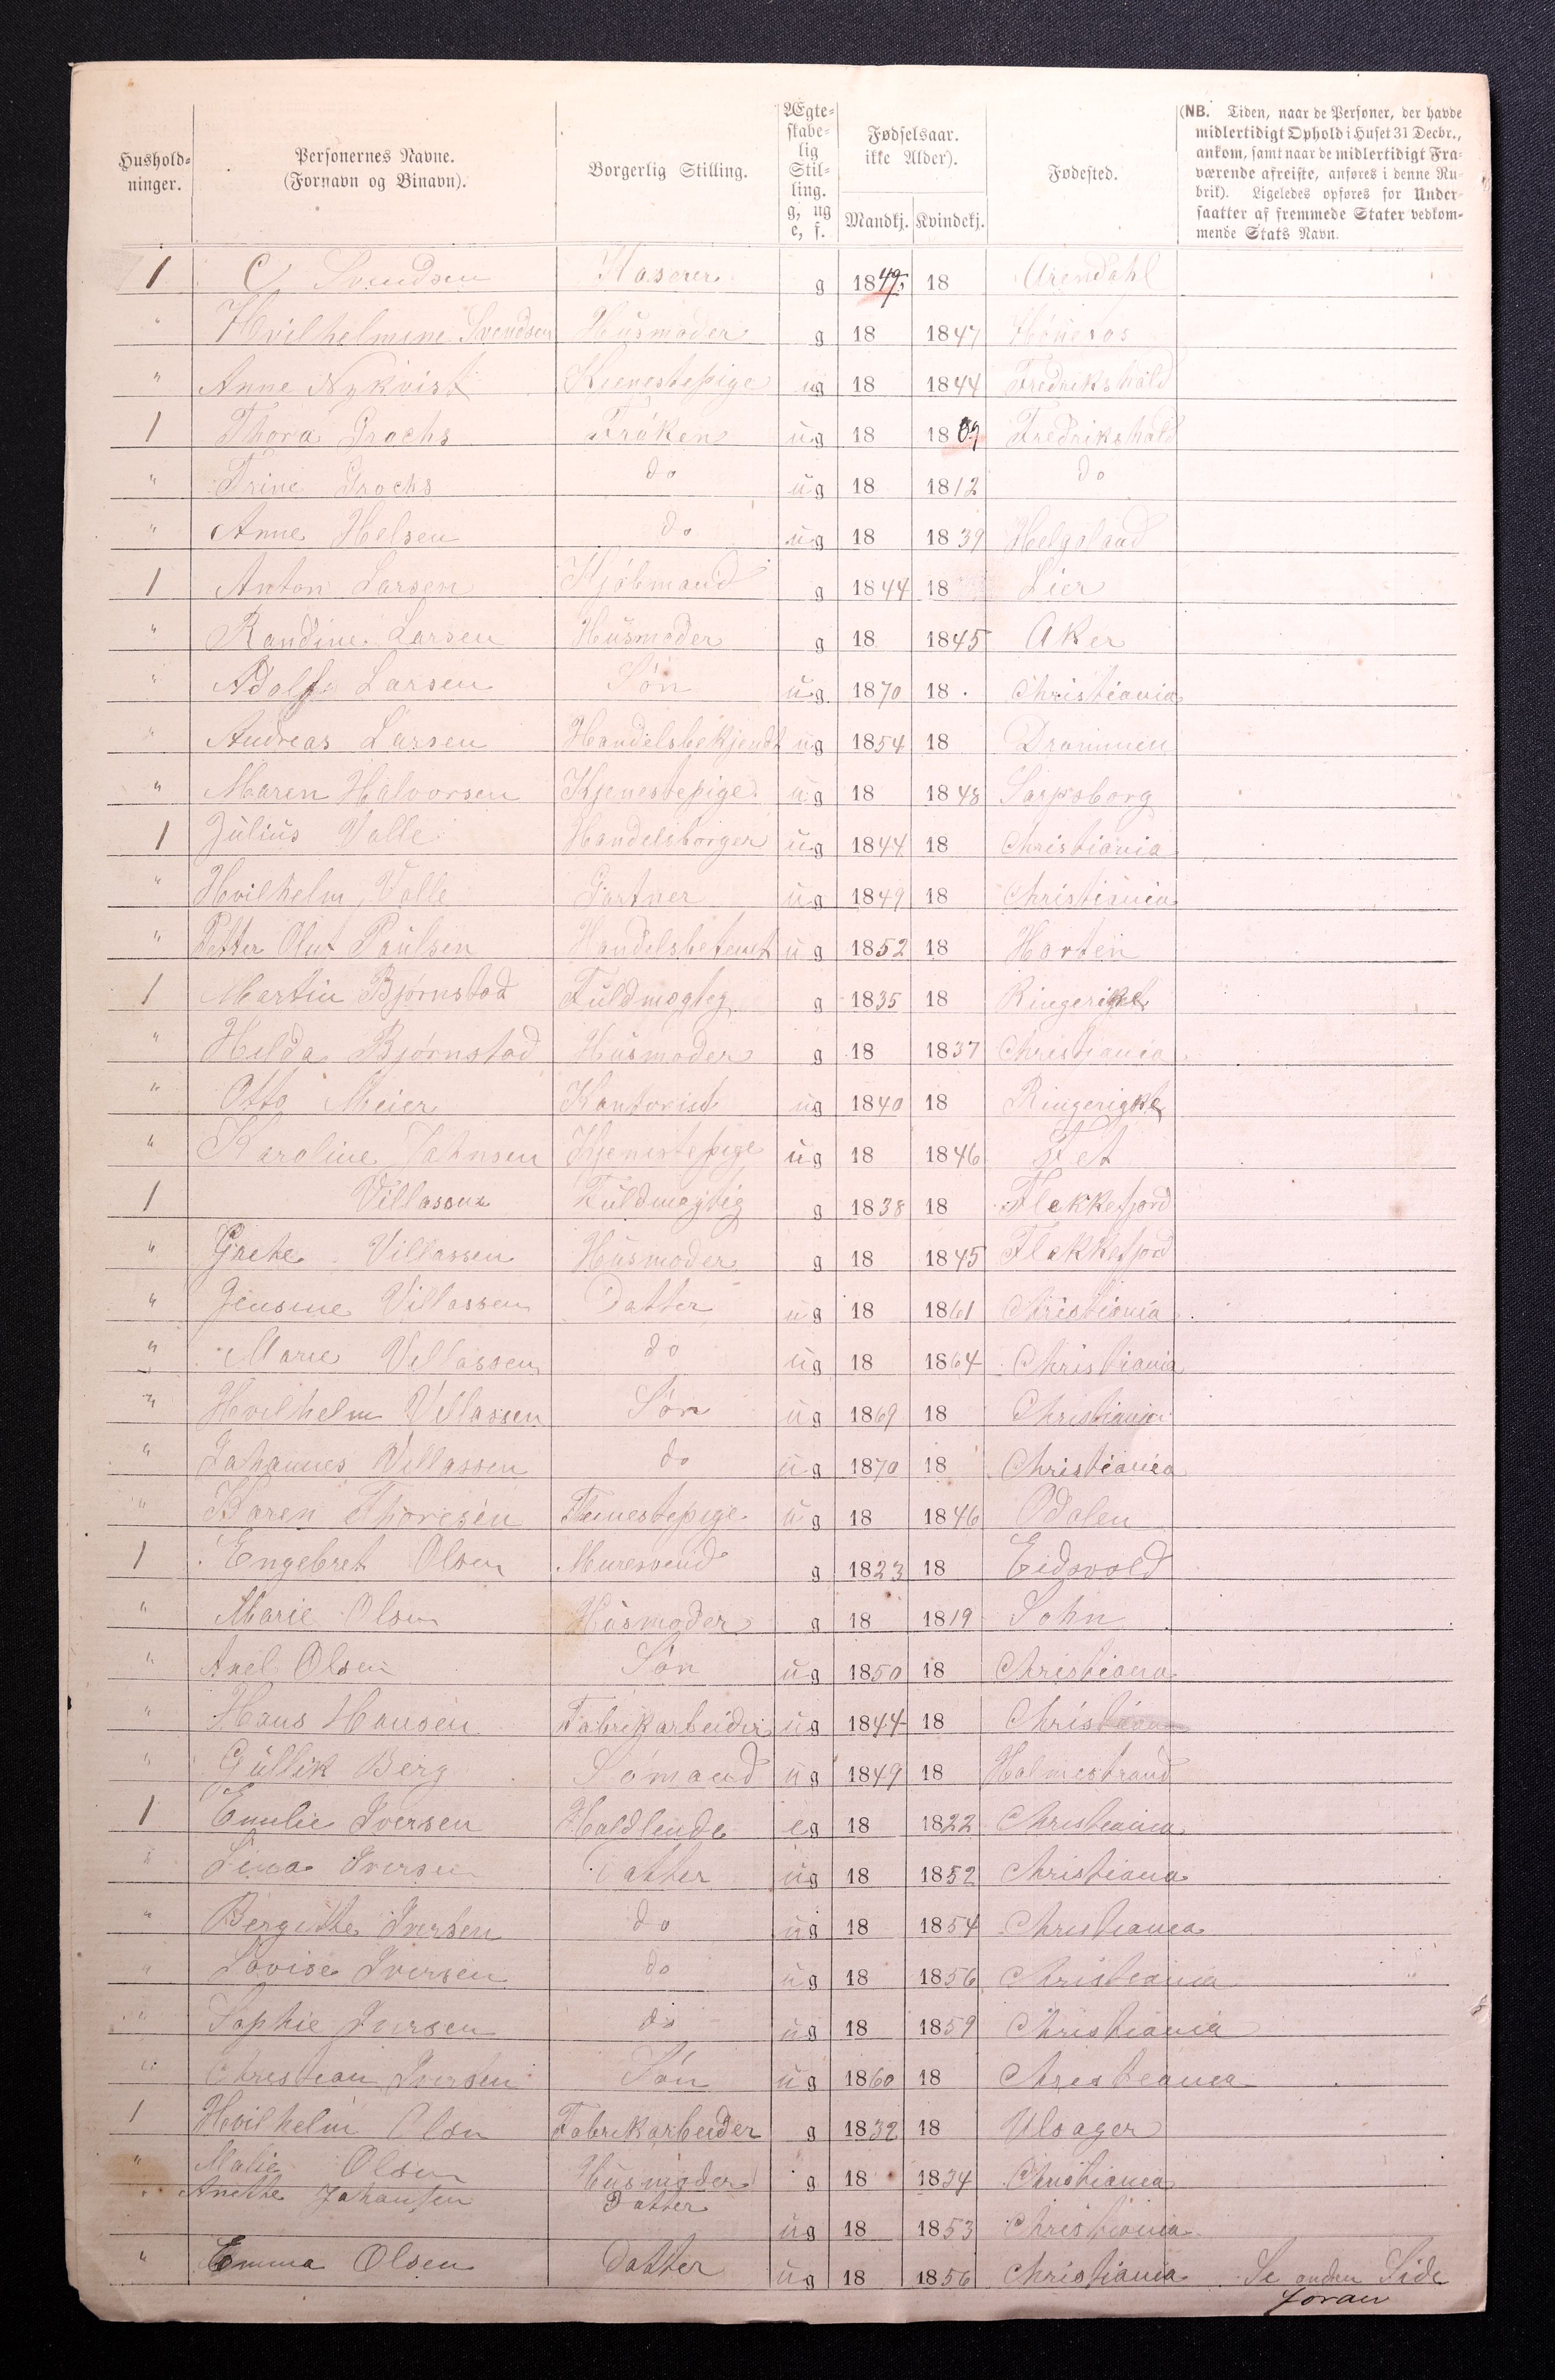 Hushold-
ninger.
Personernes Navne.
(Fornavn og Binavn).
Borgerlig Stilling.
Ægte-
skabe-
lig
Stil-
ling.
g, ug
e, f.
Fødselsaar.
ikke Alder).
Mandkj. Kvindekj.
Fødested.
(NB. Tiden, naar de Personer, der havde
midlertidigt Ophold i Huset 31 Decbr.,
ankom, samt naar de midlertidigt Fra-
værende afreiste, anføres i denne Ru-
brik). Ligeledes opføres for Under-
saatter af fremmede Stater vedkom-
mende Stats Navn.
1 C Svendsen Kaserer g 1849 18 Arendahl
" Hvilhelmine Svendsen Husmoder g 18 1847 Hönefos
" Anne Nykvist Kjenestepige ug 18 1844 Fredrikshald
1 Thora Grochs Fröken ug 18 1809 Fredrikshald
" Trine Grochs do ug 18 1812 do
" Anne Helsen do ug 18 1839 Helgoland
1 Anton Larsen Kjöbmand g 1844 18 Lier
" Randine Larsen Husmoder g 18 1845 Aker
" Adolf Larsen Sön ug 1870 18 Christiania
" Andreas Larsen Handelsbekjendt ug 1854 18 Drammen
" Maren Halvorsen Kjenestepige ug 18 1848 Sarpsborg
1 Julius Valle Handelsborger ug 1844 18 Christiania
" Hvilhelm Valle Gartner ug 1849 18 Christiania
" Petter Oluf Paulsen Handelsbetent ug 1852 18 Horten
1 Martin Bjørnstad Fuldmegteg g 1835 18 Ringeriget
" Hilda Bjørnstad Husmoder g 18 1837 Christiania
" Otto Meier Kontorist ug 1840 18 Ringerigke
" Karoline Jahnsen Kjenestepige ug 18 1846 Fet
1 Villassen Fuldmegtig g 1838 18 Flekkefjord
" Grethe Villassen Husmoder g 18 1845 Flekkefjord
" Jensine Villassen Datter ug 18 1861 Christiania
" Marie Villassen do ug 18 1864 Christiania
" Hvilhelm Villassen Sön ug 1869 18 Christiania
" Johannes Villassen do ug 1870 18 Christiania
" Karen Thoresen Tienestepige ug 18 1846 Odalen
1 Engebret Olsen Muresvend g 1823 18 Eidsvold
" Marie Olsen Husmoder g 18 1819 Sohn
" Axel Olsen Sön ug 1850 18 Christiana
" Hans Hansen Fabrikarbeider ug 1844 18 Christiania
" Gullik Berg Sömand ug 1849 18 Holmestrand
1 Emilie Iversen Holdlende eg 18 1822 Christiania
" Lina Iversen Datter ug 18 1852 Christiana
" Bergitte Iversen do ug 18 1854 Christiania
" Lovise Iversen do ug 18 1856 Christiania "
" Sophie Iversen do ug 18 1859 Christiania
" Christian Iversen Sön ug 1860 18 Christiania
1 Hvilhelm Olsen Fabrikarbeider g 1832 18 Ulsager
" Malie Olsen Husmoder g 18 1834 Christiania
" Anette Johansen Datter ug 18 1853 Christiania
" Emma Olsen Datter ug 18 1856 Christiania Se anden Side
foran